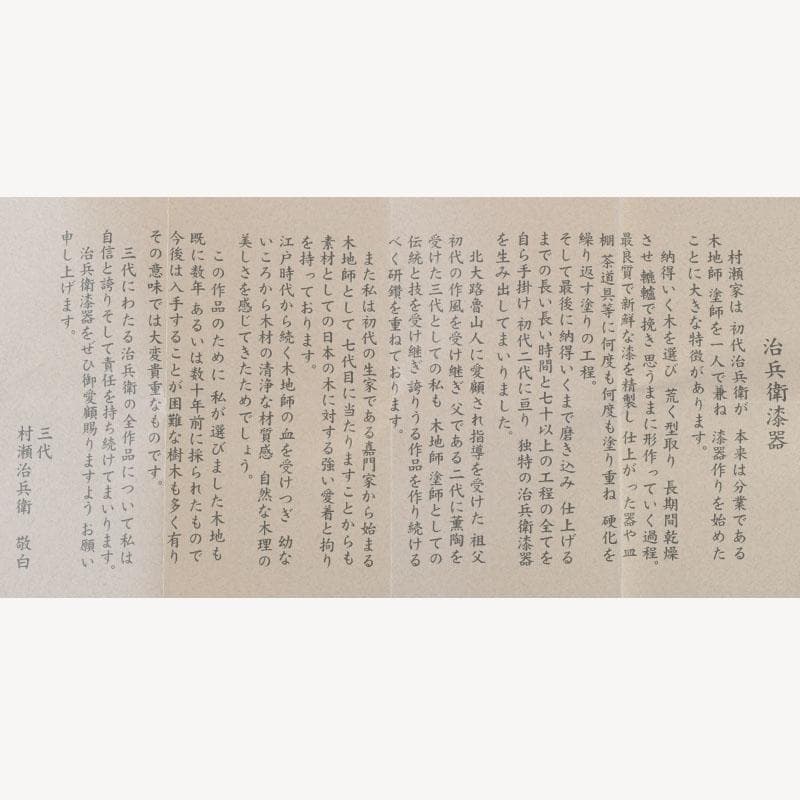 治兵衛漆器
村瀬家は 初代治兵衛が 本来は分業である
木地師 塗師を一人で兼ね 漆器作りを始めた
ことに大きな特徴があります。
納得いく木を選び 荒く型取り 長期間乾燥
させ 轆轤で挽き 思うままに形作っていく過程。
最良質で新鮮な漆を精製し 仕上がった器や皿
棚 茶道具等に何度も何度も塗り重ね 硬化を
繰り返す塗りの工程。
そして最後に納得いくまで磨き込み 仕上げる
までの長い長い時間と七十以上の工程の全てを
自ら手掛け 初代二代に亘り 独特の治兵衛漆器
を生み出してまいりました。
北大路魯山人に愛顧され指導を受けた 祖父
初代の作風を受け継ぎ 父である二代に薫陶を
受けた三代としての私も 木地師 塗師としての
伝統と技を受け継ぎ 誇りうる作品を作り続ける
べく研鑽を重ねております。
また私は初代の生家である嘉門家から始まる
木地師として 七代目に当たりますことからも
素材としての日本の木に対する強い愛着と拘り
を持っております。
江戸時代から続く木地師の血を受けつぎ 幼な
いころから木材の清浄な材質感 自然な木理の
美しさを感じてきたためでしょう。
この作品のために 私が選びました木地も
既に数年 あるいは数十年前に採られたもので
今後は入手することが困難な樹木も多く有り
その意味では大変貴重なものです。
三代にわたる治兵衛の全作品について私は
自信と誇りそして責任を持ち続けてまいります。
治兵衛漆器をぜひ御愛顧賜りますよう お願い
申し上げます。
三代
村瀬治兵衛 敬白